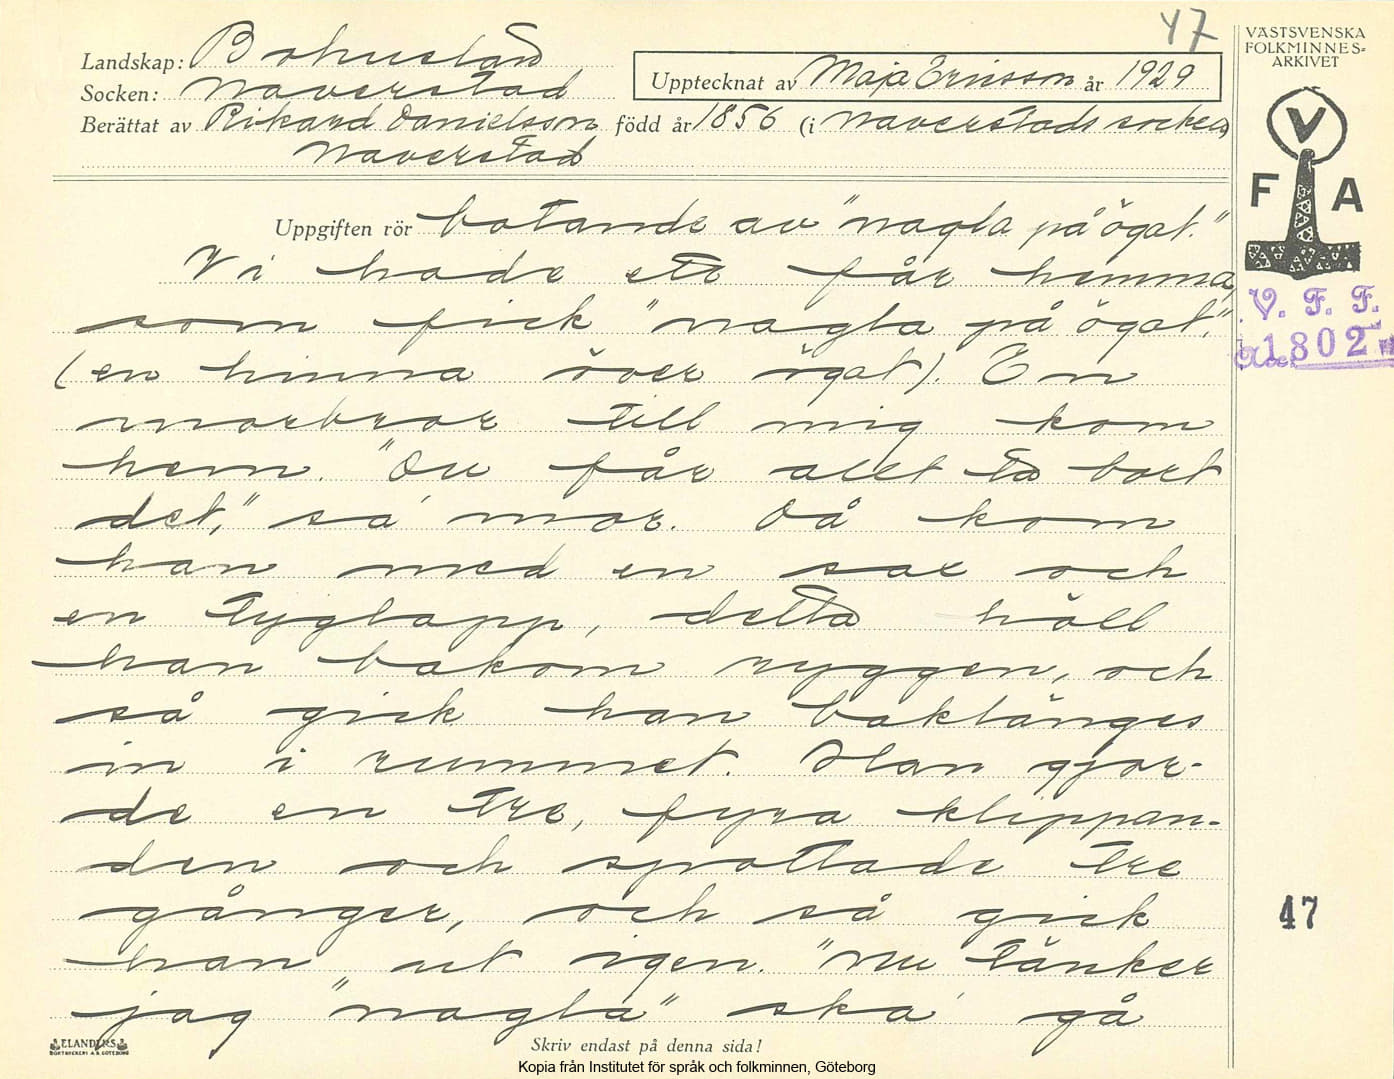 47
Landskap: Bohuslän
Socken: Naverstad
Upptecknat av Maja Ericsson år 1929
Berättat av Rikard Danielsson född år 1856 (i Naverstads socken)
Naverstad
VÄSTSVENSKA
FOLKMINNES-
ARKIVET
V
F A
Uppgiften rör botande av "nagla på ögat."
Vi hade ett får hemma,
som fick "nagla på ögat,"
(en hinna över ögat). En
morbror till mig kom
hem. "Du får allt ta bort
det," sa mor. Då kom
han med en sax och
en tyglapp, detta höll
han bakom ryggen, och
så gick han baklänges
in i rummet. Han gjor-
de en tre, fyra klippan-
den och spottade tre
gånger, och så gick
han ut igen. "Nu tänker
jag "nagla" ska gå
V. F. F.
1802
47
ELANDERS
BOKTRYCKERI A.B. GÖTEBORG
Skriv endast på denna sida!
Kopia från Institutet för språk och folkminnen, Göteborg